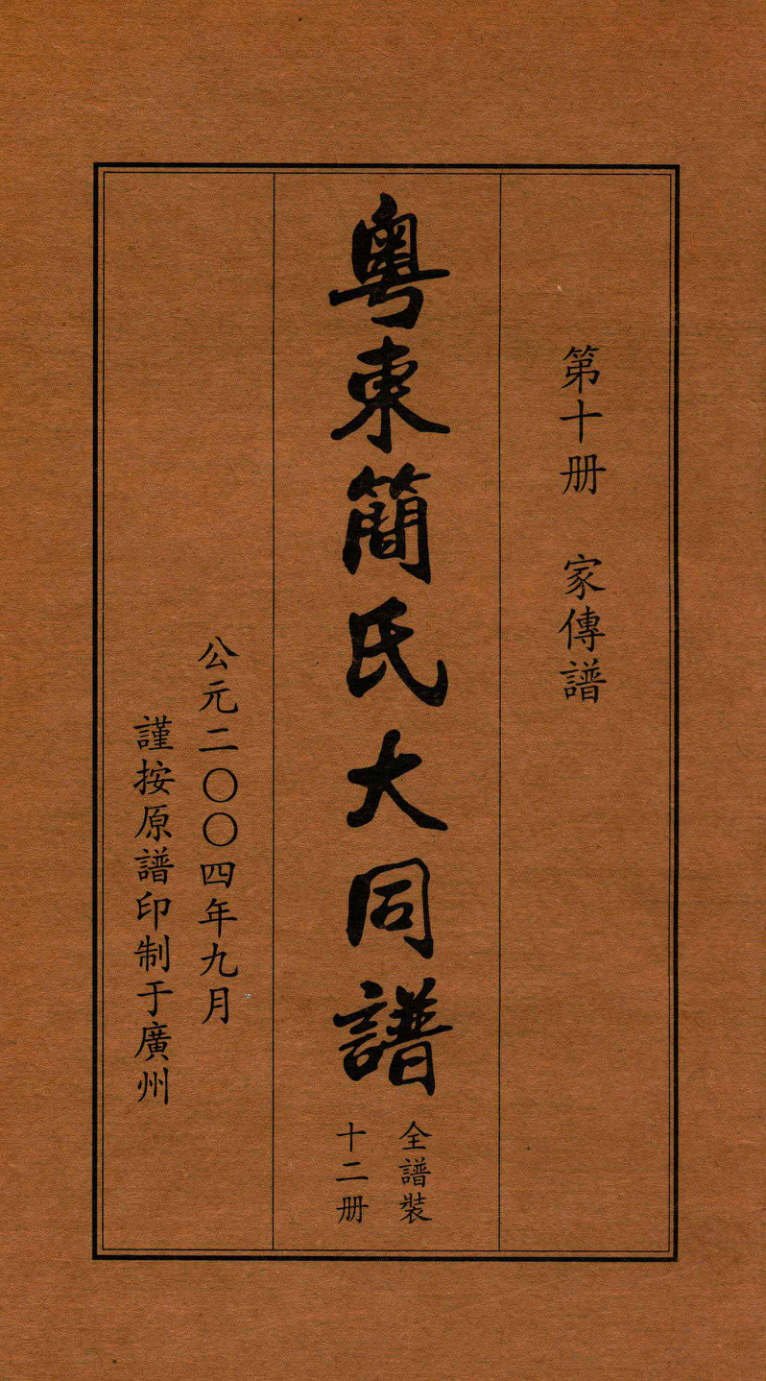 第十册　家傳譜
粵東簡氏大同譜
全譜裝
十二册
公元二〇〇四年九月
謹按原譜印制于廣州